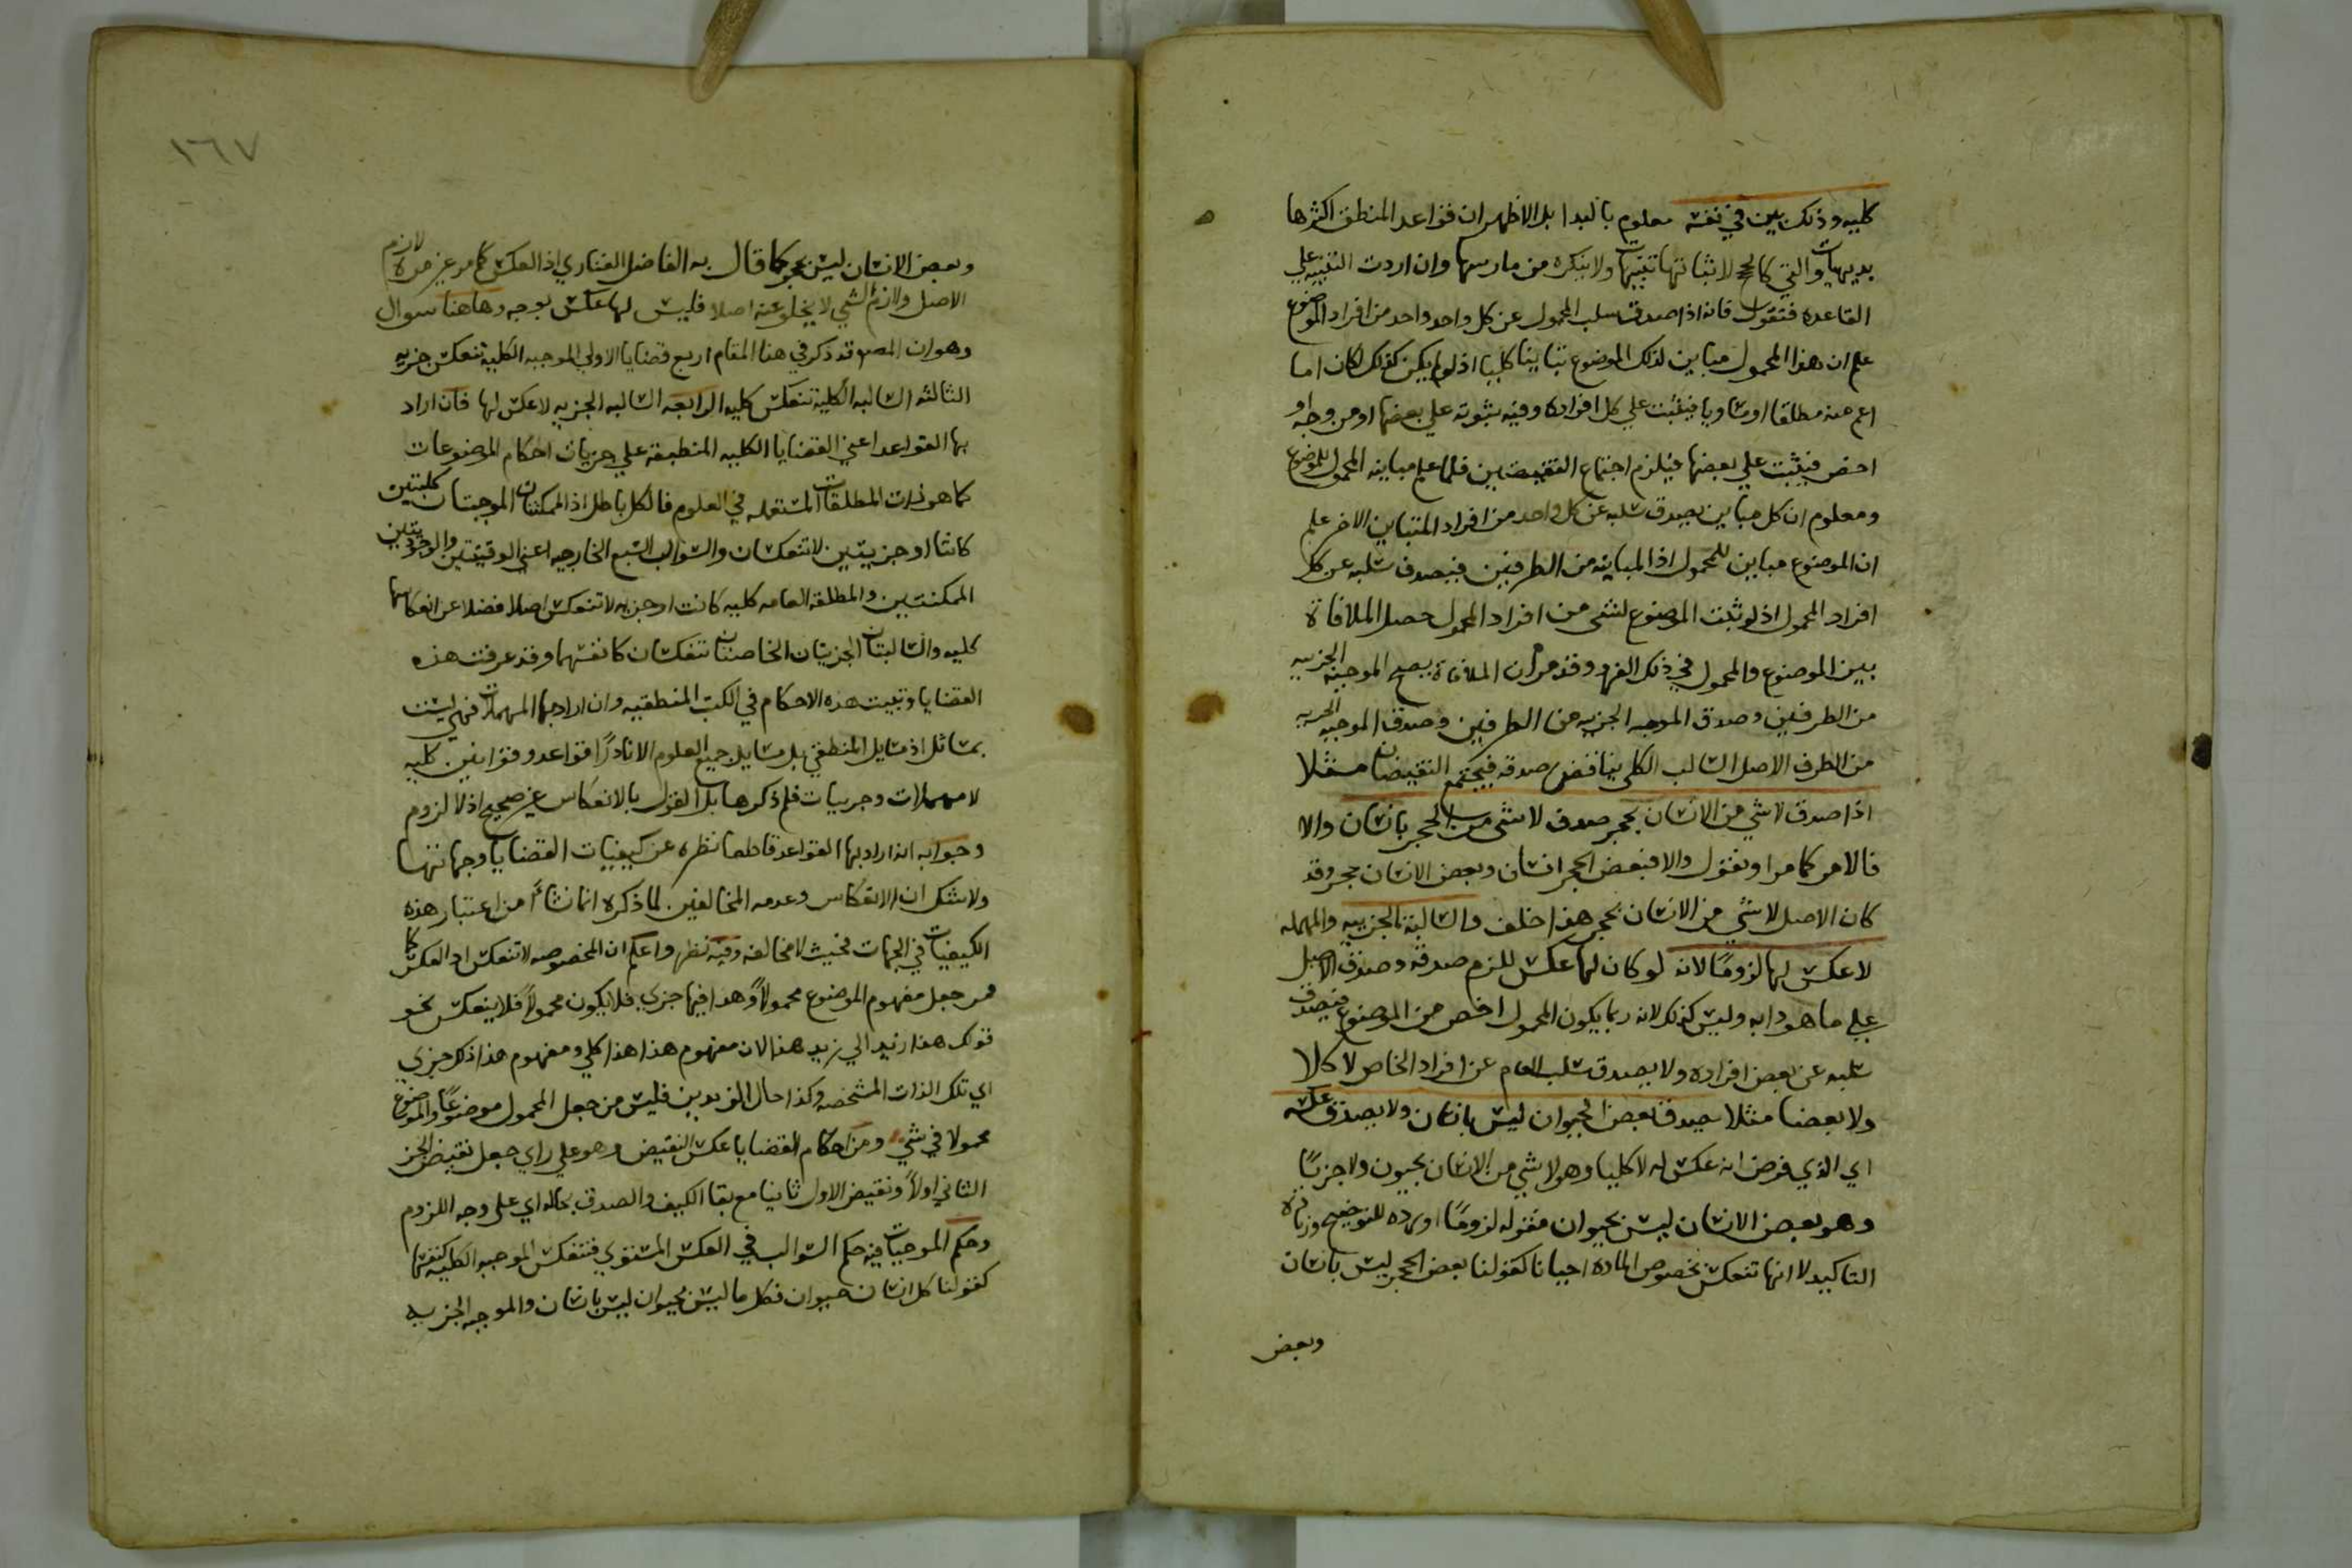 كليه وذلك بين في نفسه معلوم بالبدا بل الاظهر ان قواعد المنطق اكثرها
بديهيات والتي كالحجج لاثباتها تنبيهات ولا ينكره من مارسها وان اردت التنبيه علي
القاعده فنقول فانه اذا صدق سلب المحمول عن كل واحد واحد من افراد الموضوع
علم ان هذا المحمول مباين لذلك الموضوع تباينا كليا اذ لو لم يكن كذلك لكان اما
اعم منه مطلقا او مساويا فيثبت علي كل افراده وفيه ثبوته علي بعضها او من وجه او
اخص فيثبت علي بعضها فيلزم اجتماع النقيضين فلما علم مباينه المحمول للموضوع
ومعلوم ان كل مباين يصدق سلبه عن كل واحد من افراد المتباين الاخر علم
ان الموضوع مباين للمحمول اذ المباينه من الطرفين فيصدق سلبه عن كل
افراد المحمول اذ لو ثبت الموضوع لشي من افراد المحمول حصل الملاقاة
بين الموضوع والمحمول في ذلك الفرد وقد مر ان الملاقاة يصح الموجبه الجزييه
من الطرفين وصدق الموجبه الجزييه من الطرفين وصدق الموجبه الجزييه
من الطرف الاصل السالب الكلي يناقض صدقه فيجتمع النقيضان مثلا
اذا صدق لا شي من الانسان بحجر صدق لا شي من الحجر بانسان والا
فالامر كما مر او نقول والا فبعض الحجر انسان وبعض الانسان حجر وقد
كان الاصل لا شي من الانسان بحجر هذا خلف والسالبة الجزييه والمهمله
لا عكس لها لزومًا لانه لو كان لها عكس للزم صدقه وصدق الاصل
علي ما هو دابه وليس كذلك لانه ربما يكون المحمول اخص من الموضوع فيصدق
سلبه عن بعض افراده ولا يصدق سلب العام عن افراد الخاص لا كلا
ولا بعضا مثلا يصدق بعض الحيوان ليس بانسان ولا يصدق عكسه
اي الذي فرض انه عكس له لا كليا وهو لا شي من الانسان بحيوان ولا جزييًا
وهو بعض الانسان ليس بحيوان فقوله لزومًا اورده للتوضيح وزيادة
التاكيد لا انها تنعكس بخصوص الماده احيانا كقولنا بعض الحجر ليس بانسان
وبعض
١٦٧
وبعض الانسان ليس بحجر كما قال به الفاضل الفناري اذ العكس كما مر غير مرة لازم
الاصل ولازم الشي لا يخلو عنه اصلا فليس لها عكس بوجه وهاهنا سوال
وهو ان المصـ قد ذكر في هذا المقام اربع قضايا الاولي الموجبه الكلية تنعكس جزييه
الثالثه السالبه الكلية تنعكس كليه الرابعه السالبه الجزييه لا عكس لها فان اراد
بها القواعد اعني القضايا الكليه المنطبقة علي جزييات احكام الموضوعات
كما هو ذات المطلقات المستعمله في العلوم فالكل باطل اذ الممكنتان الموجبتان كليتين
كانتا او جزييتين لا تنعكسان والسوالب السبع الخارجيه اعني الوقتيتين والوجوديتين
الممكنتين والمطلقه العامه كليه كانت او جزييه لا تنعكس اصلا فضلا عن انعكاسها
كليه والسالبتان الجزييتان الخاصتان تنعكسان كانفسهما وقد عرفت هذه
القضايا وتبينت هذه الاحكام في الكتب المنطقيه وان اراد بها المهملات فهي ليست
بمسائل اذ مسايل المنطقي بل مسايل جميع العلوم الا نادرًا قواعد وقوانين كليه
لا مهملات وجزييات فلم ذكرها بل القول بالانعكاس غير صحيح اذ لا لزوم
وجوابه انه اراد بها القواعد قاطعا نظره عن كيفيات القضايا وجهاتها
ولا شك ان الانعكاس وعدمه المخالفين لما ذكره انما نشأ من اعتبار هذه
الكيفيات في الجهات فحيث لا مخالفه وفيه نظر واعلم ان المخصوصه لا تنعكس اذ العكس كما
مر جعل مفهوم الموضوع محمولاً وهذا فيها جزي فلا يكون محمولاً فلا ينعكس نحو
قولك هذا زيد الي زيد هذا لان مفهوم هذا هذا كلي ومفهوم هذا ذلك جزي
اي تلك الذات المشخصه وكذا حال الزيدين فليس من جعل المحمول موضوعًا والموضوع
محمولا في شي ومن احكام القضايا عكس النقيض وهو علي راي جعل نقيض الجز
الثاني اولاً ونقيض الاول ثانيا مع بقا الكيف والصدق بحاله اي على وجه اللزوم
وحكم الموجبات فيه حكم السوالب في العكس المستوي فتنعكس الموجبه الكليه كنفسها
كقولنا كل انسان حيوان فكل ما ليس بحيوان ليس بانسان والموجبه الجزييه